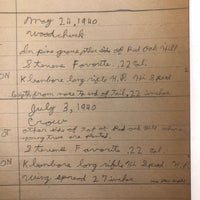 May 24, 1940
Woodchuck
In pine grove, other side of Red Oak Hill.
Stevens Favorite. .22 cal.
ON Kleanbore long rifle H.P. Hi Speed
length from nose to end of tail, 22 inches
July 3, 1940
Crow
other side of Red Oak Hill where
young trees are planted.
Stevens Favorite .22 cal.
ON Kleanbore long rifle Hi Speed H.P.
Wing spread 27 inches